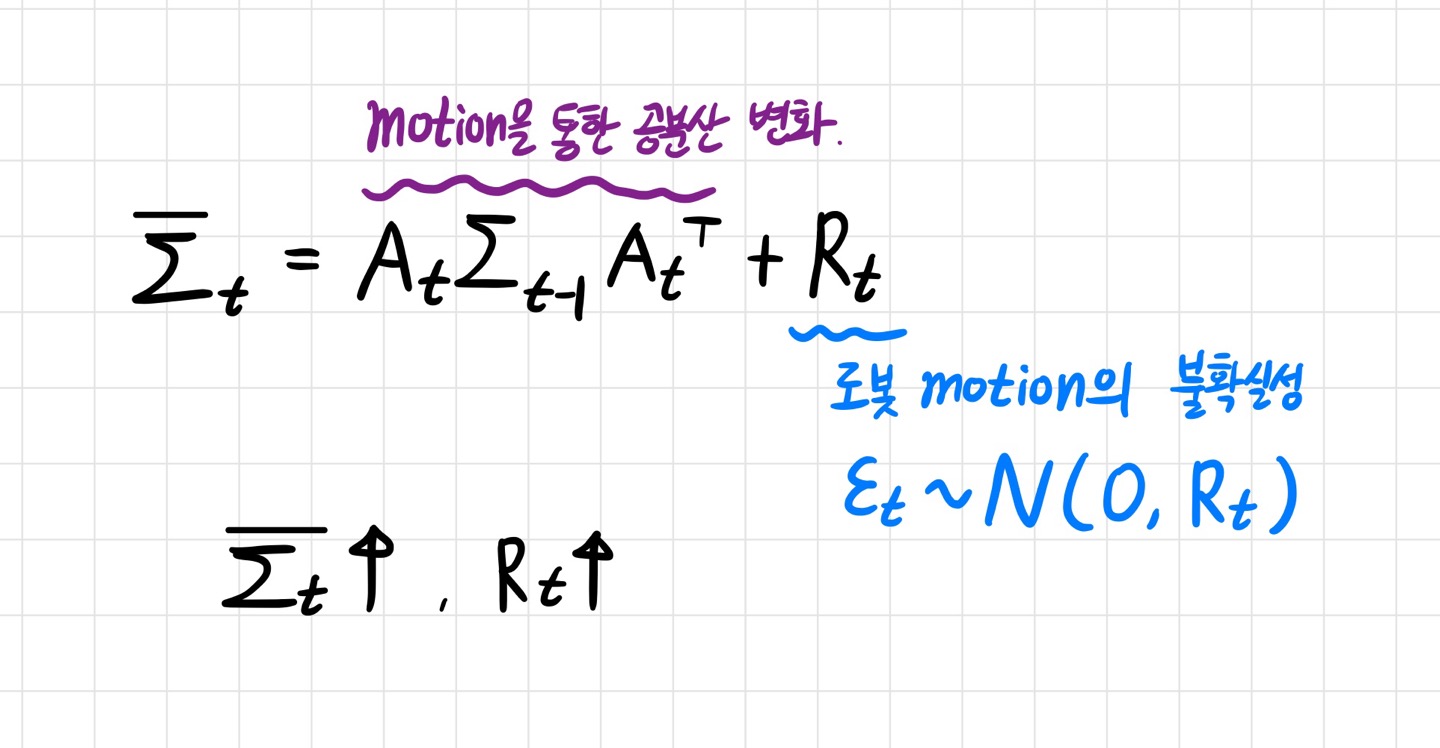 motion을 통한 공분산 변화.
Σ̅ₜ = AₜΣₜ₋₁Aₜᵀ + Rₜ
로봇 motion의 불확실성
εₜ ~ N(0, Rₜ)
Σ̅ₜ↑, Rₜ↑